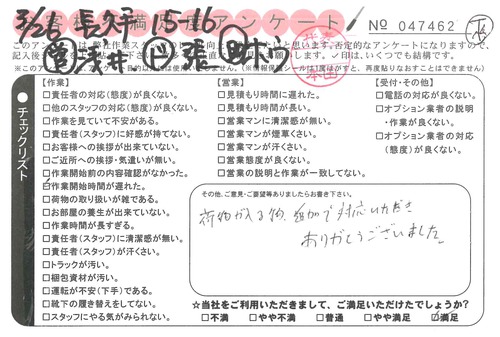 3/26 長久手 15-16
お客様満足アンケート
№ 047462
このアンケートは、弊社作業スタッフの
※このアンケート
【作業】
□責任者の対応(態度)が良くない。
□他のスタッフの対応(態度)が良くない。
□作業を見ていて不安がある。
□責任者(スタッフ)に好感が持てない。
□お客様への挨拶が出来ていない。
□ご近所への挨拶・気遣いが無い。
□作業開始前の内容確認がなかった。
□作業開始時間が遅れた。
□荷物の取り扱いが雑である。
□お部屋の養生が出来ていない。
□作業時間が長すぎる。
□責任者(スタッフ)に清潔感が無い。
□責任者(スタッフ)が汗くさい。
□トラックが汚い。
□梱包資材が汚い。
□運転が不安(下手)である。
□靴下の履き替えをしてない。
□スタッフにやる気がみられない。
【営業】
□見積もり時間に遅れた。
□見積もり時間が長い。
□営業マンに清潔感が無い。
□営業マンが煙草くさい。
□営業マンが汗くさい。
□営業態度が良くない。
□営業の説明と作業が一致してない。
【受付・その他】
□電話の対応が良くない。
□オプション業者の説明
・作業が良くない。
□オプション業者の対応
(態度)が良くない。
●チェックリスト
その他、ご意見・ご要望等ありましたらお書き下さい。
荷物が入る物、追加で対応いただき
ありがとうございました。
☆当社をご利用いただきまして、ご満足いただけたでしょうか?
□不満 □やや不満 □普通 □やや満足 ☑満足